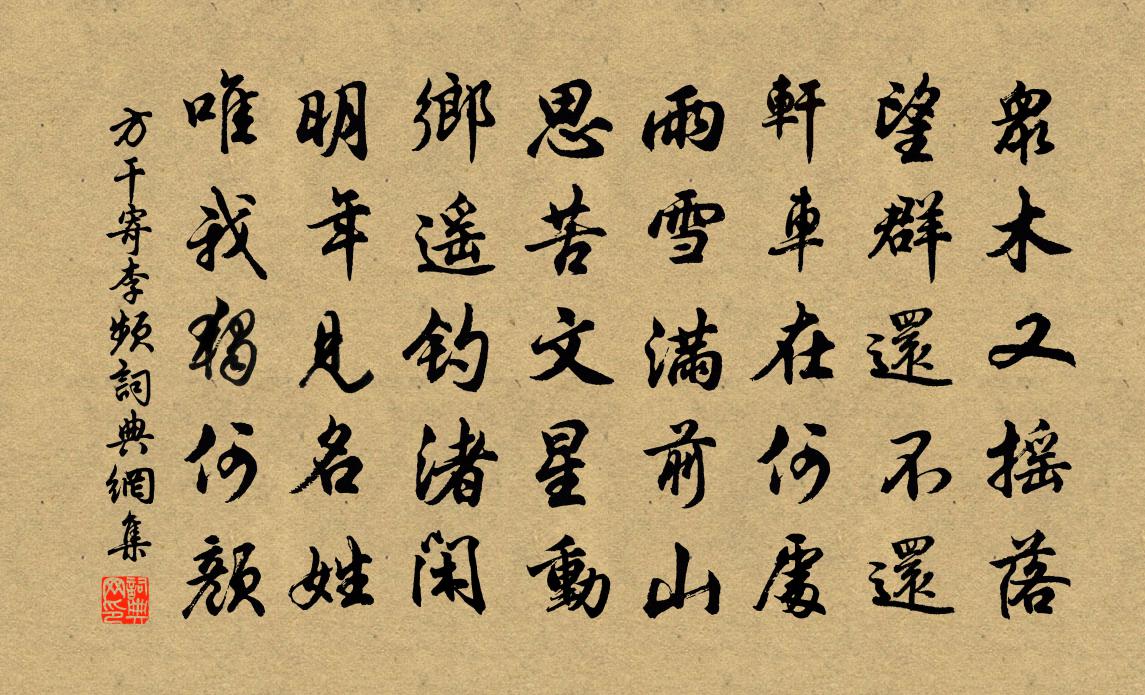 眾木又搖落
望群還不還
軒車在何處
雨雪滿前山
思苦文星動
鄉遥釣渚閑
明年見名姓
唯我獨何顏
方干寄李頻詞典網集
詞典网印